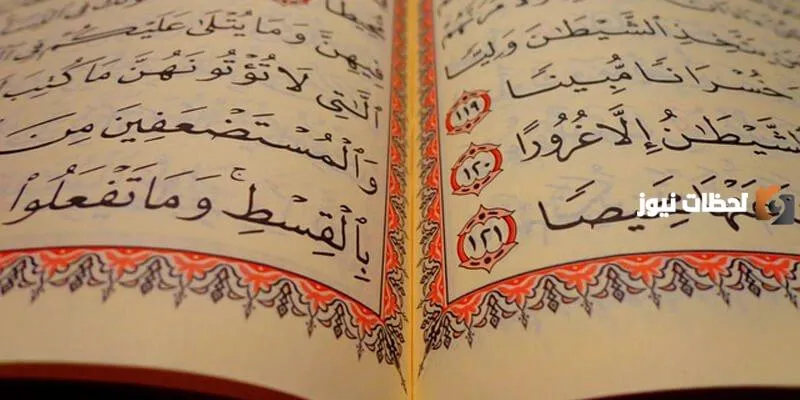 يَتَّخِذِ ٱلشَّيْطَٰنَ وَلِيًّا
خُسْرَانًا مُّبِينًا ١١٩
ٱلشَّيْطَٰنُ إِلَّا غُرُورًا ١٢٠
عَنْهَا مَحِيصًا ١٢١
فِيهِنَّ وَمَا يُتْلَىٰ عَلَيْكُمْ فِى
ٱلَّٰتِى لَا تُؤْتُونَهُنَّ مَا كُتِبَ
وَٱلْمُسْتَضْعَفِينَ مِنَ
بِٱلْقِسْطِ ۚ وَمَا تَفْعَلُوا۟
لحظات نيوز